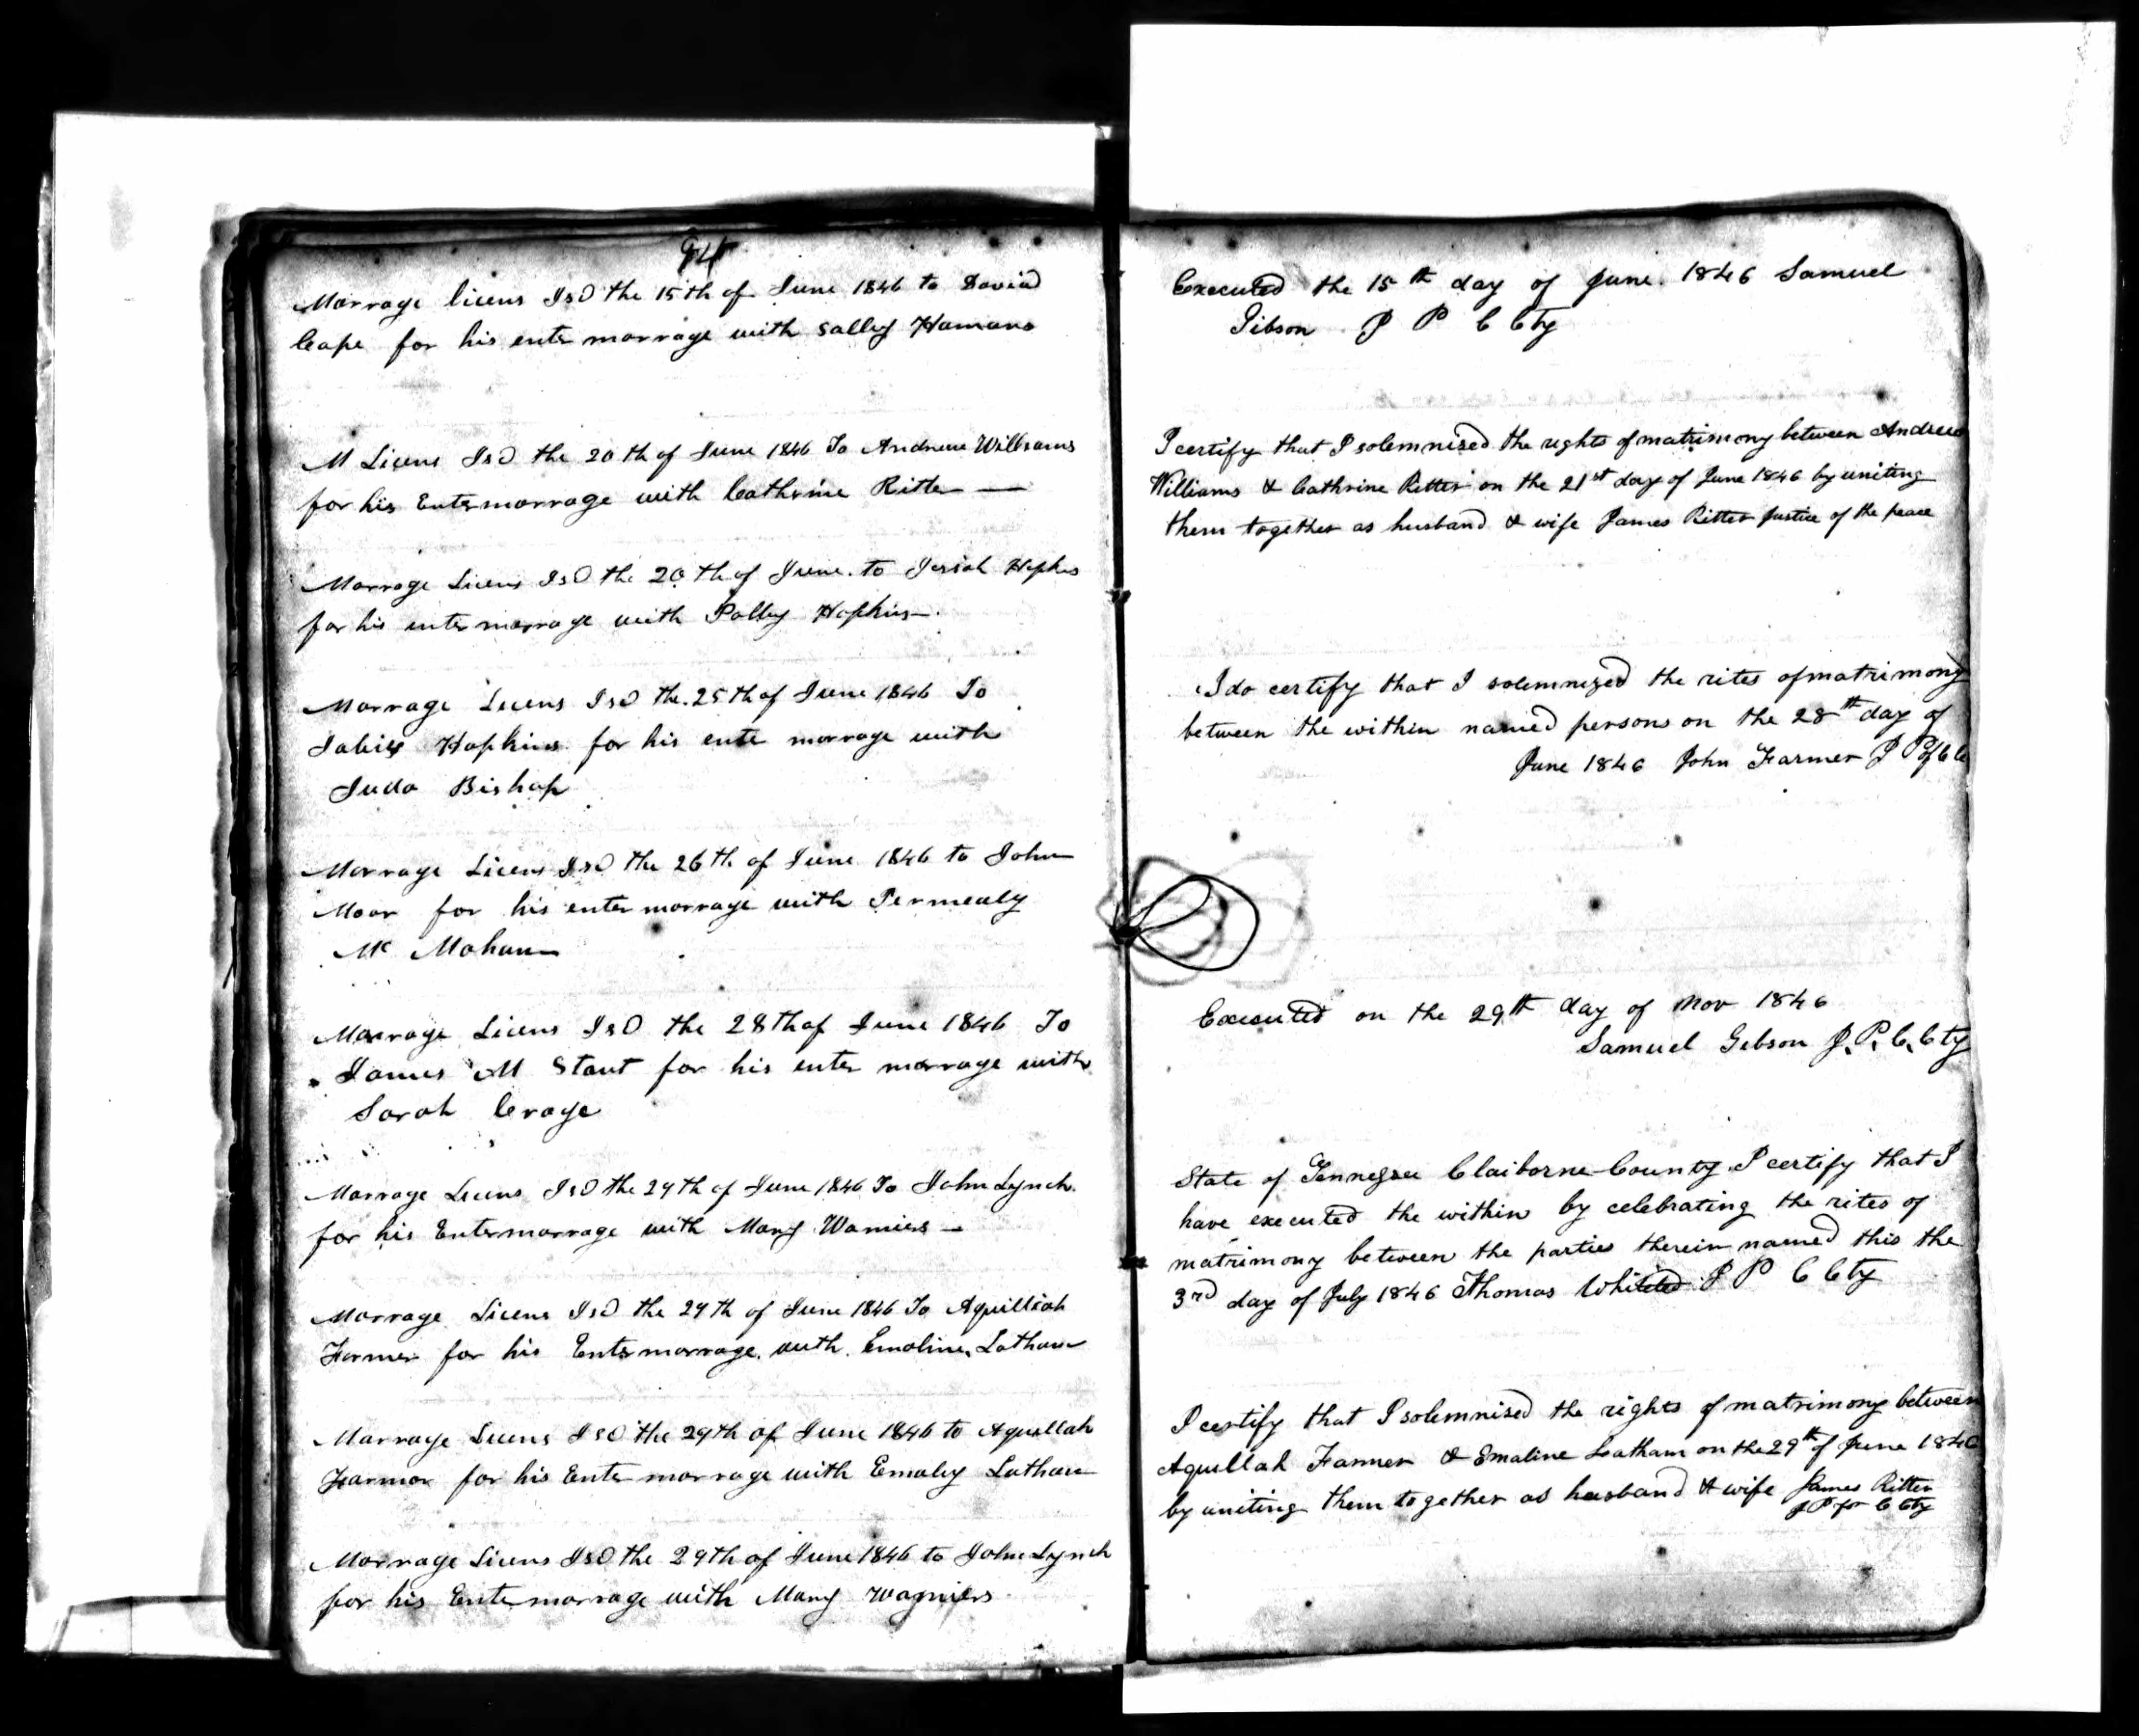 94
Marrage licens Isd the 15th of June 1846 to David
Cape for his enter marrage with Sally Hamans
M Licens Isd the 20th of June 1846 To Andrew Williams
for his Entermarrage with Catherine Ritter —
Marrage Licens Isd the 20th of June to
for his enter marrage with Polly Hopkins
Marrage Licens Isd the 25th of June 1846 To
Hopkins for his ente marrage with
Juda Bishop
Marrage Licens Isd the 26th of June 1846 to John
Moor for his enter marrage with Permealy
Mc Mahan
Marrage Licens Isd the 28th of June 1846 To
James M Stant for his enter marrage with
Sarah Crage
Marrage Licens Isd the 29th of June 1846 To John Lynch
for his Entermarrage with Mary —
Marrage Licens Isd the 29th of June 1846 To Aquillah
Farmer for his Entermarrage with Emoline Latham
Marrage Licens Isd the 29th of June 1846 to Aquillah
Farmor for his Ente marrage with Emaley Latham
Marrage Licens Isd the 29th of June 1846 to John Lynch
for his Ente marrage with Mary
Executed the 15th day of June 1846 Samuel
Gibson J P C Cty
I certify that I solemnised the rights of matrimony between Andrew
Williams & Cathrine Ritter on the 21st day of June 1846 by uniting
them together as husband & wife James Ritter Justice of the peace
I do certify that I solemnized the rites of matrimony
between the within named persons on the 28th day of
June 1846 John Farmer J P of C C
Executed on the 29th day of Nov 1846
Samuel Gibson J. P. C. Cty
State of Tennessee Claiborne County I certify that I
have executed the within by celebrating the rites of
matrimony between the parties therein named this the
3rd day of July 1846 Thomas Whitehead J P C Cty
I certify that I solemnised the rights of matrimony between
Aquillah Farmer & Emaline Latham on the 29th of June 1846
by uniting them together as husband & wife James Ritter
J P for C Cty